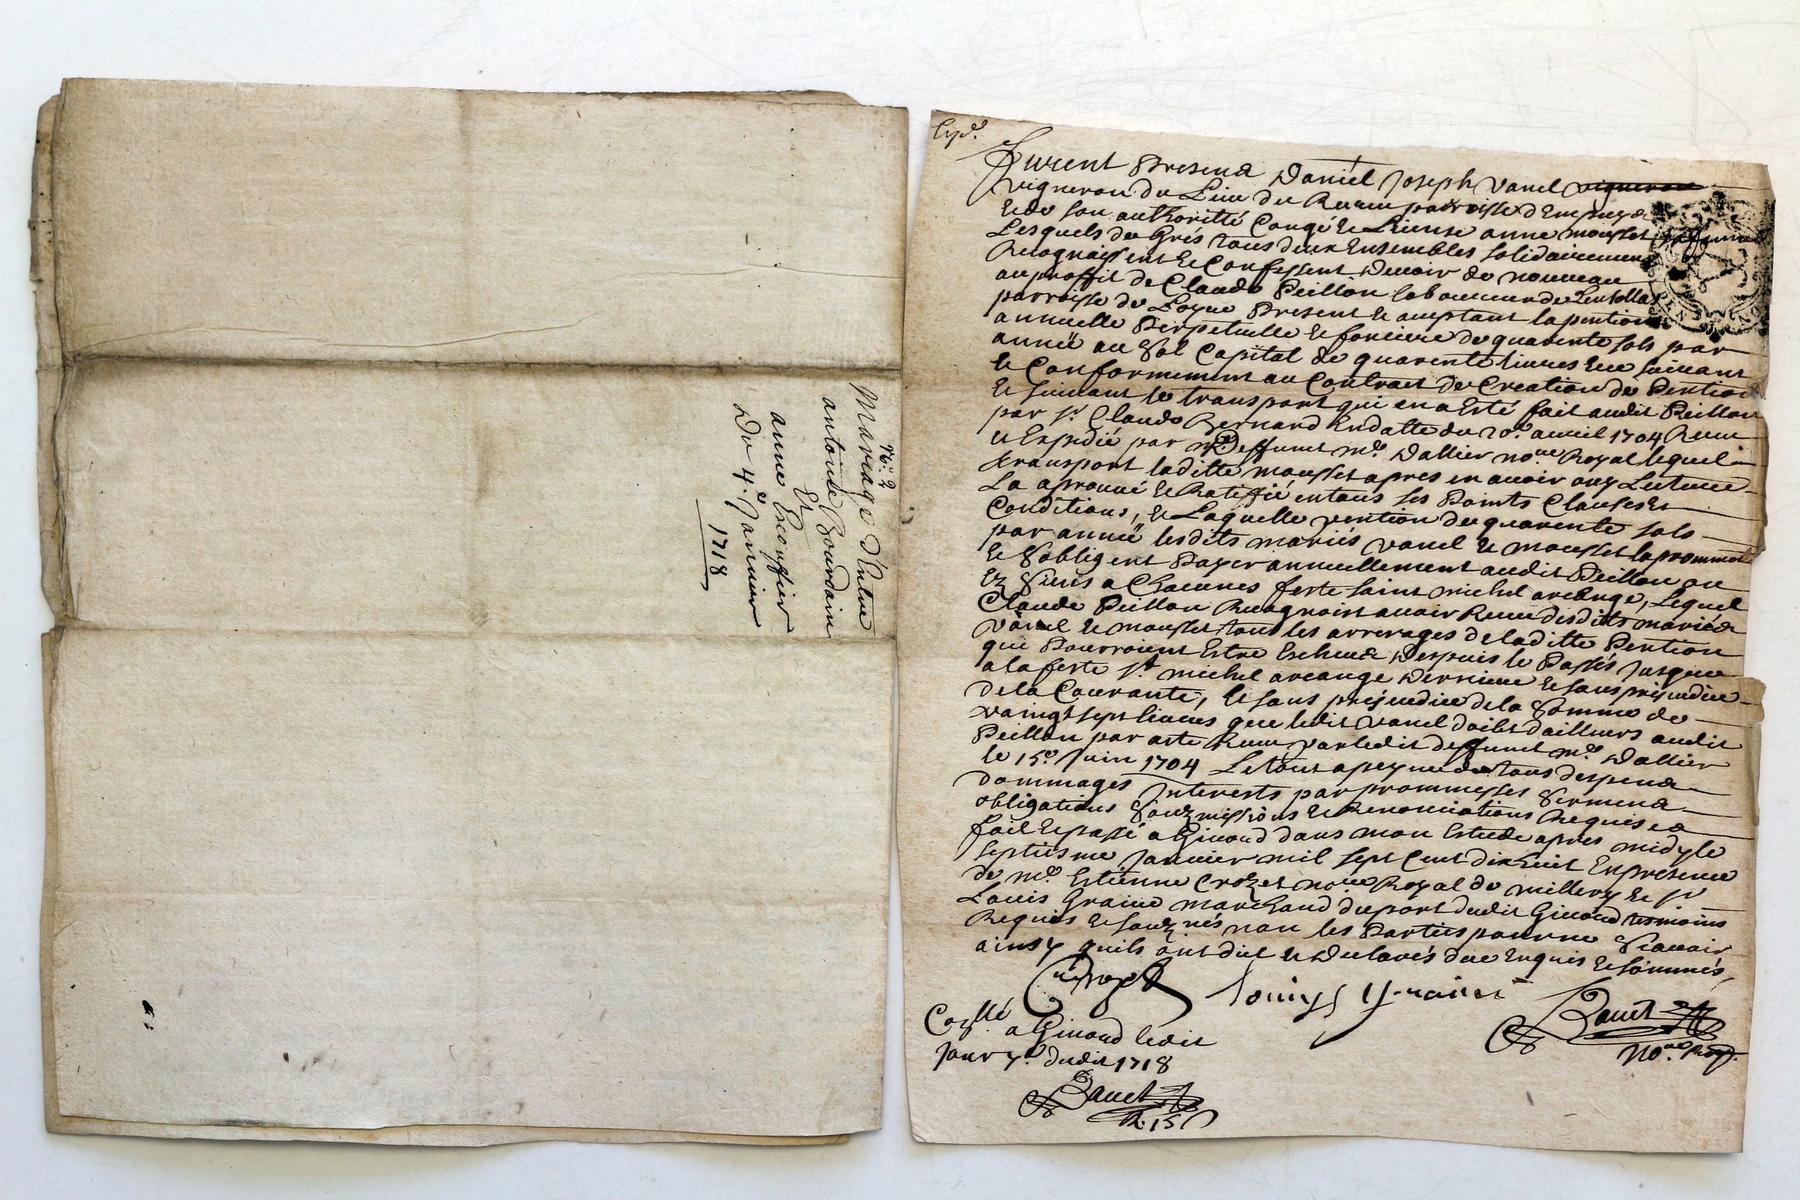 N.° 2
Mariage d'Entre
antoine Bourdain
Et
anne
Du 4.e Janvier
1718
Exp.é
Furent Presens Daniel Joseph Vanel vigneron
vigneron du Lieu du parroisse d'
Et de son authoritté Congé et License anne mousset sa femme
Lesquels de Grés tous deux Ensembles solidairement
Recognoissent et Confessent Devoir de nouveau
au proffit de Claude Peillon laboureur de
parroisse de Loyre Present et aceptant la pention
annuelle Perpetuelle et fonciere de quarente sols par
année au Sol Capital de quarente livres Et ce suivant
et Conformement au Contrait de Creation de Pention
Et suivant le transport qui en a Esté fait audit Peillon
par sr Claude Bernard En datte du 20.e avril 1704 Receu
et Expedié par Deffunt me. Dallier no.re Royal lequel
transport laditte mousset apres en avoir ouy Lecture
La aprouvé et Ratiffié en tous ses Points Clauses et
Conditions, et Laquelle pention de quarente sols
par année lesdits mariés Vanel et mousset promm
et Sobligent Payer annuellement audit Peillon ou
Ez Siens a Chacunes feste saint michel arcange, Lequel
Claude Peillon Recognoist avoir Receu desdits mariés
Vanel et mousset tous les arrerages de laditte Pention
qui Pourroient Estre Escheus Despuis le Passés Jusques
a la feste st. michel arcange Derniere et sans prejudice
de la Courante, et sans prejudice de la Somme de
vaingt sept livres que ledit Vanel doibt dailleurs audit
Peillon par acte Receu par ledit deffunt me. Dallier
le 15.e Juin 1704 Le tout a peyne de tous despens
dommages Interests par prommesses Serment
obligations Soubzmissions et Renonciations Requises
fait et passé a Givord dans mon Estude apres midy le
septiesme Janvier mil sept Cent dix huit En presence
de me. Estienne Crozet no.re Royal de millery et sr
Louis Graine marchand du port dudit Givord tesmoins
Requis et soubz.nés non les Parties pour ne Scavoir
ainsy quils ont dict et Declarés de ce Enquis et sommés
Louys
no.re Roy.
Con.llé a Givord ledit
Jour 7.e dudit 1718
R. 15 s